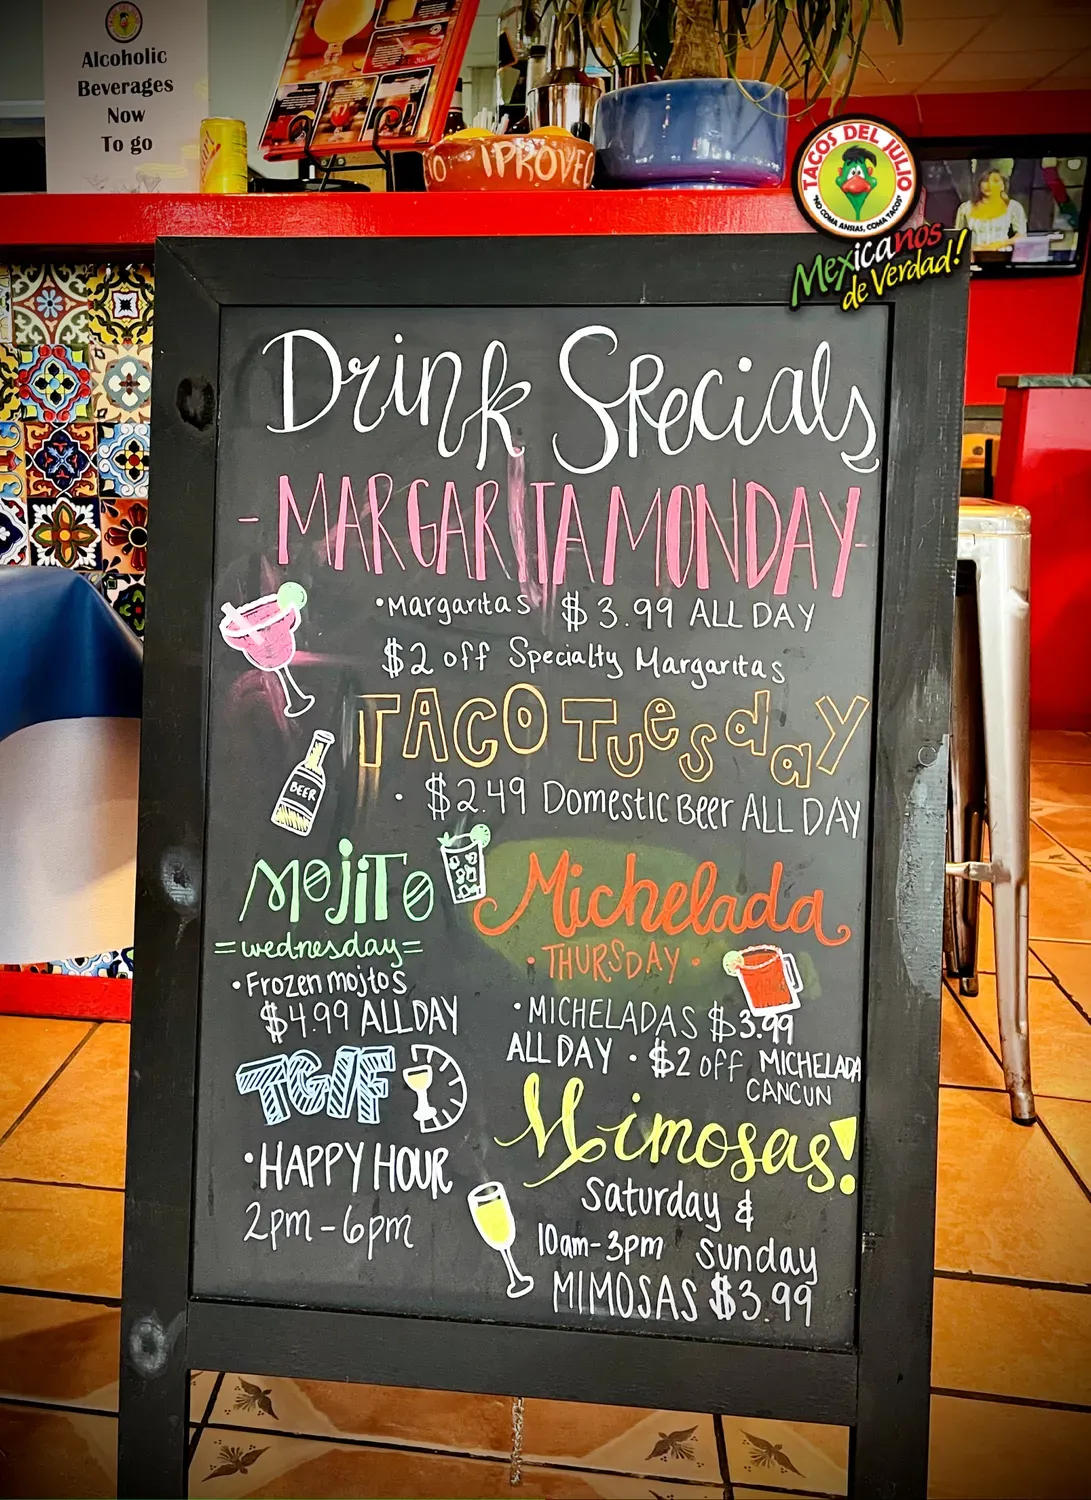 Alcoholic
Beverages
Now
To go
IPROVEC
TACOS DEL JULIO
"NO COMA ANSIAS, COMA TACOS"
Mexicanos
de Verdad!
Drink Specials
-MARGARITA MONDAY-
•Margaritas $3.99 ALL DAY
$2 off Specialty Margaritas
TACO TUesdaY
BEER
• $2.49 Domestic Beer ALL DAY
MOJITO
=wednesday=
•Frozen mojtos
$4.99 ALL DAY
Michelada
•THURSDAY•
•MICHELADAS $3.99
ALL DAY • $2 off MICHELADA
CANCUN
TGIF
•HAPPY HOUR
2pm-6pm
Mimosas!
Saturday &
10am-3pm Sunday
MIMOSAS $3.99